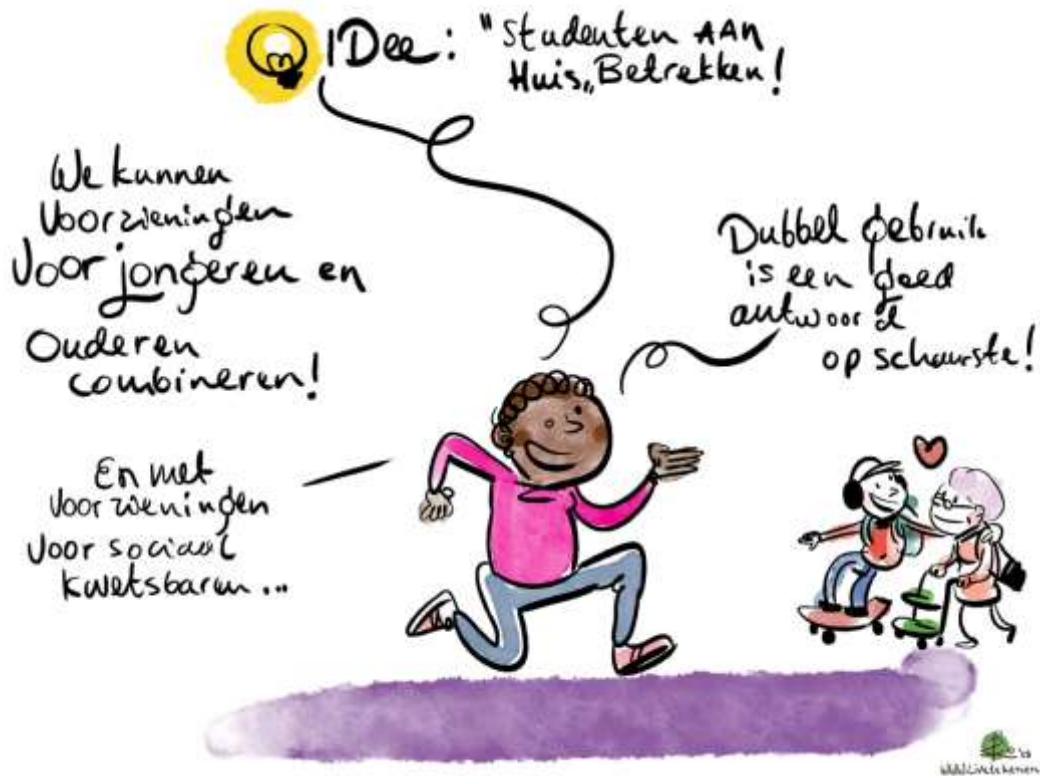 IDee: "Studenten AAN
Huis„ Betrekken!
We kunnen
Voorzieningen
Voor jongeren en
Ouderen
combineren!
Dubbel gebruik
is een goed
antwoord
op schaarste!
En met
Voorzieningen
Voor sociaal
kwetsbaren...